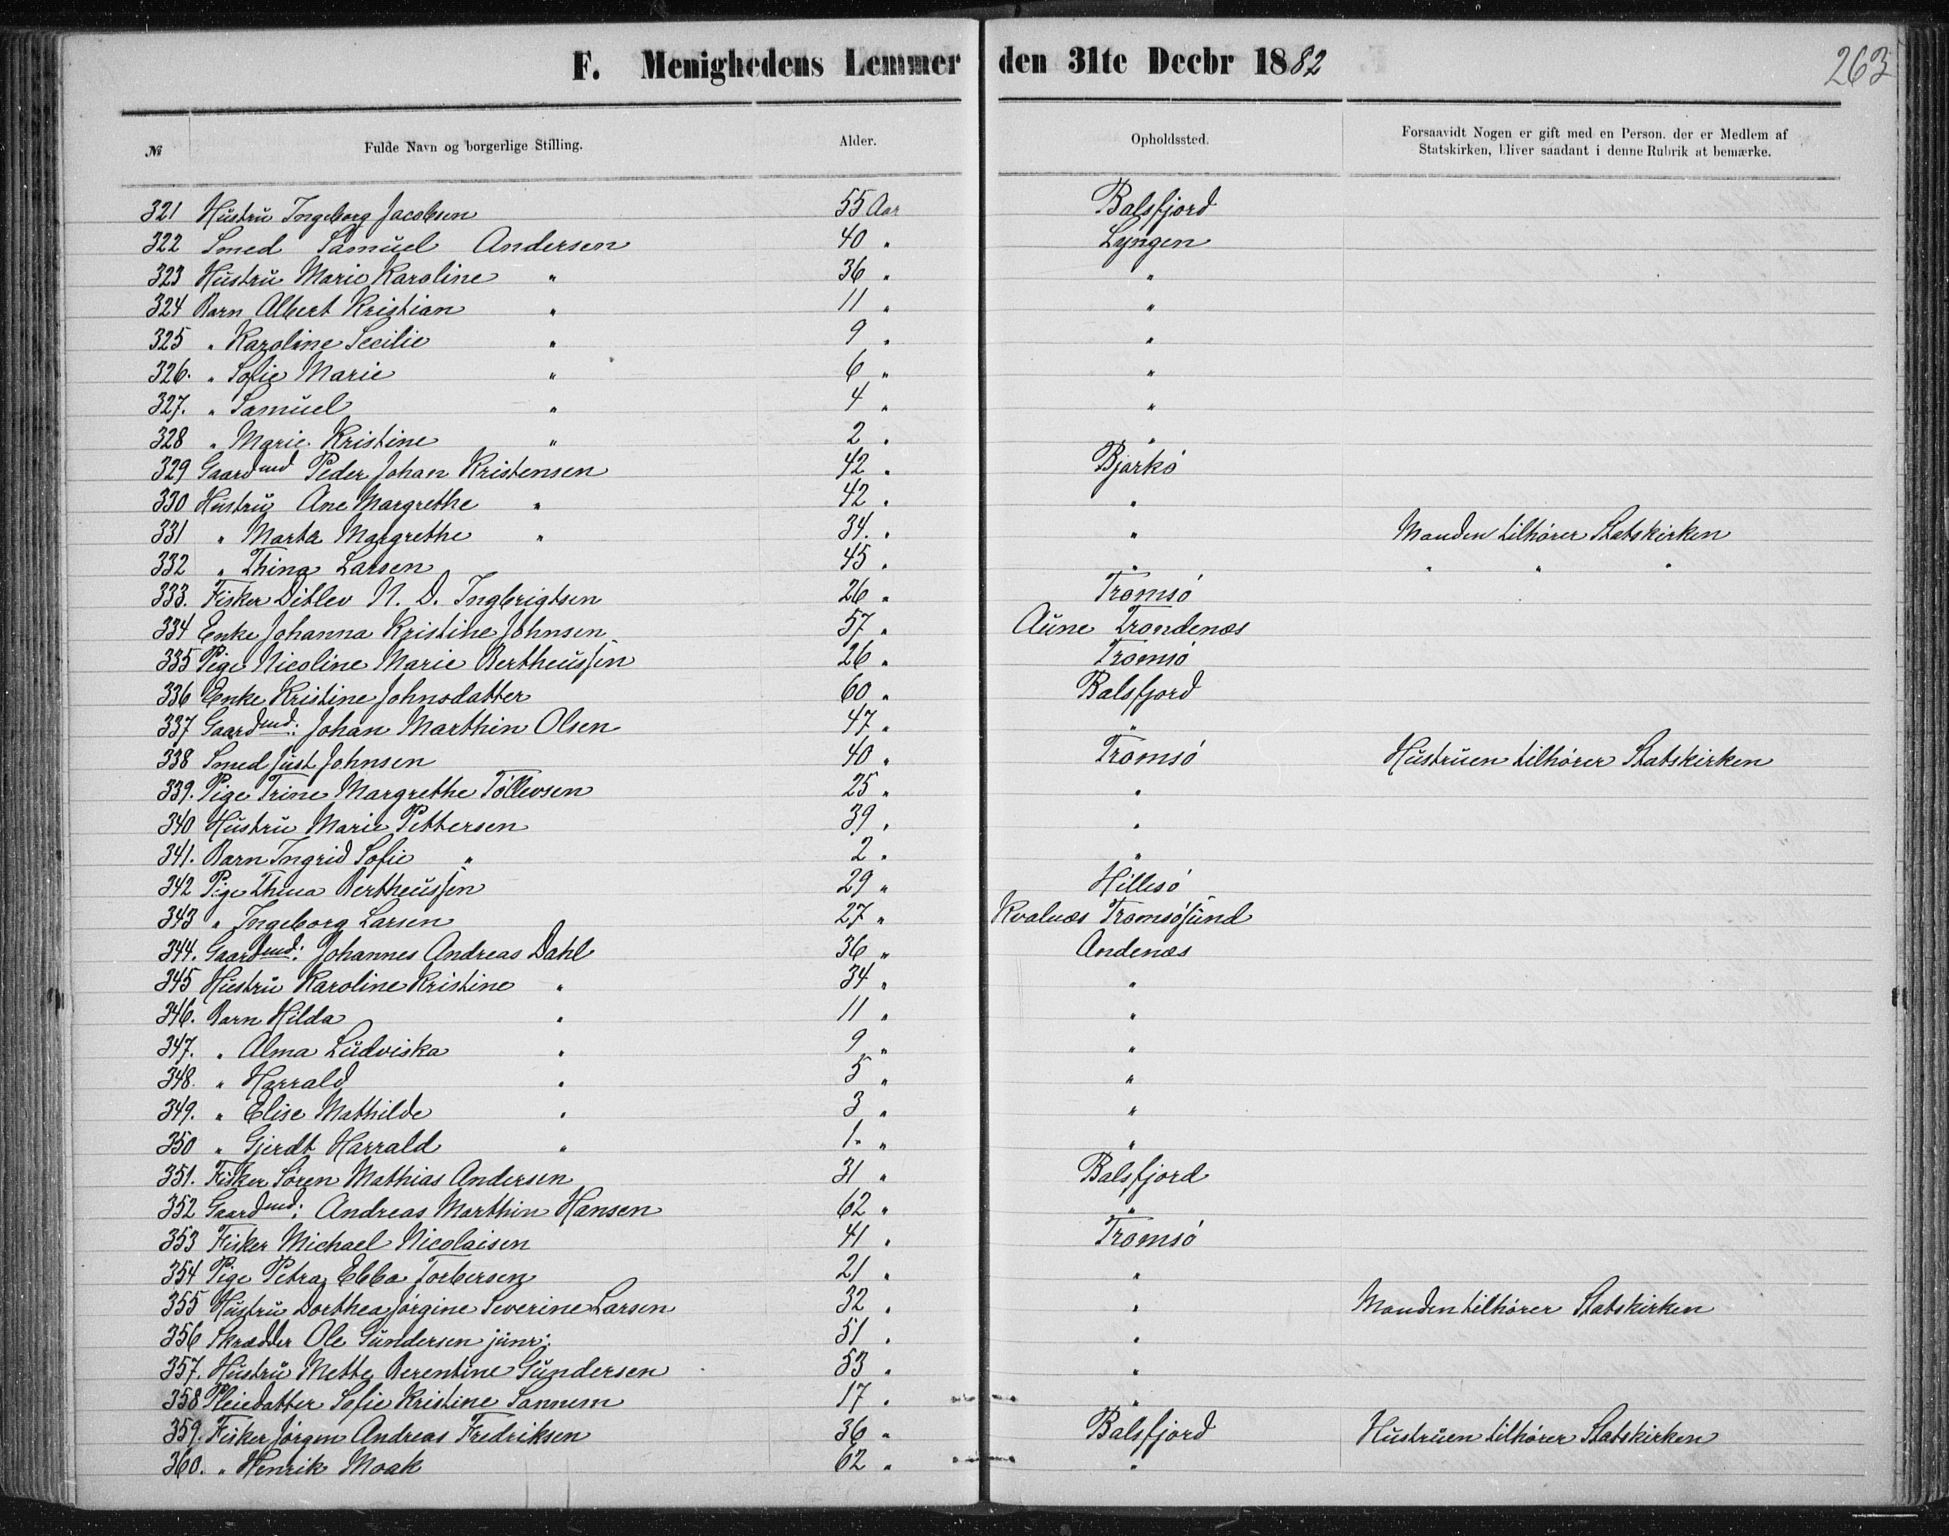 F. Menighedens Lemmer den 31te Decbr 1882
263
№ Fulde Navn og borgerlige Stilling. Alder. Opholdssted. Forsaavidt Nogen er gift med en Person, der er Medlem af Statskirken, bliver saadant i denne Rubrik at bemærke.
321 Hustru Ingeborg Jacobsen 55 Aar Balsfjord
322 Smed Samuel Andersen 40 " Lyngen
323 Hustru Marie Karoline " 36 " "
324 Barn Albert Kristian " 11 " "
325 " Karoline Secilie " 9 " "
326. " Sofie Marie " 6 " "
327. " Samuel " 4 " "
328 " Marie Kristine " 2 " "
329 Gaardmd Peder Johan Kristensen 42 " Bjarkö
330 Hustru Ane Margrethe " 42 " "
331 " Marta Margrethe " 34. " " Manden tilhører Statskirken
332 " Thina Larsen 45 " " " " "
333. Fisker Ditlev N. D. Ingbrigtsen 26 " Tromsö
334 Enke Johanna Kristine Johnsen 57 " Aune Trondenæs
335 Pige Nicoline Marie Bertheussen 26 " Tromsö
336 Enke Kristine Johnsdatter 60 " Balsfjord
337 Gaardmd: Johan Marthin Olsen 47 " "
338 Smed Just Johnsen 40 " Tromsö Hustruen tilhører Statskirken
339. Pige Trine Margrethe Töllevsen 25 " "
340 Hustru Marie Pettersen 39 " "
341. Barn Ingrid Sofie " 2 " "
342 Pige Thina Bertheussen 29 " Hillesö
343 " Ingeborg Larsen 27 " Kvalnæs Tromsösund
344. Gaardmd: Johannes Andreas Dahl 36 " Andenæs
345 Hustru Karoline Kristine " 34 " "
346. Barn Hilda " 11 " "
347. " Alma Ludviska " 9 " "
348. " Harrald " 5 " "
349. " Elise Mathilde " 3 " "
350 " Gjerdt Harrald " 1. " "
351. Fisker Sören Mathias Andersen 31 " Balsfjord
352 Gaardmd: Andreas Marthin Hansen 62 " "
353 Fisker Michael Nicolaisen 41 " Tromsö
354 Pige Petra Ebba Torbersen 21 " "
355 Hustru Dorthea Jörgine Severine Larsen 32 " " Manden tilhører Statskirken
356 Skrædder Ole Gundersen junr: 51 " "
357. Hustru Mette Berentine Gundersen 53 " "
358 Pleiedatter Sofie Kristine Sannem 17 " "
359. Fisker Jörgen Andreas Fredriksen 36 " Balsfjord Hustruen tilhører Statskirken
360. " Henrik Moak 62 " "